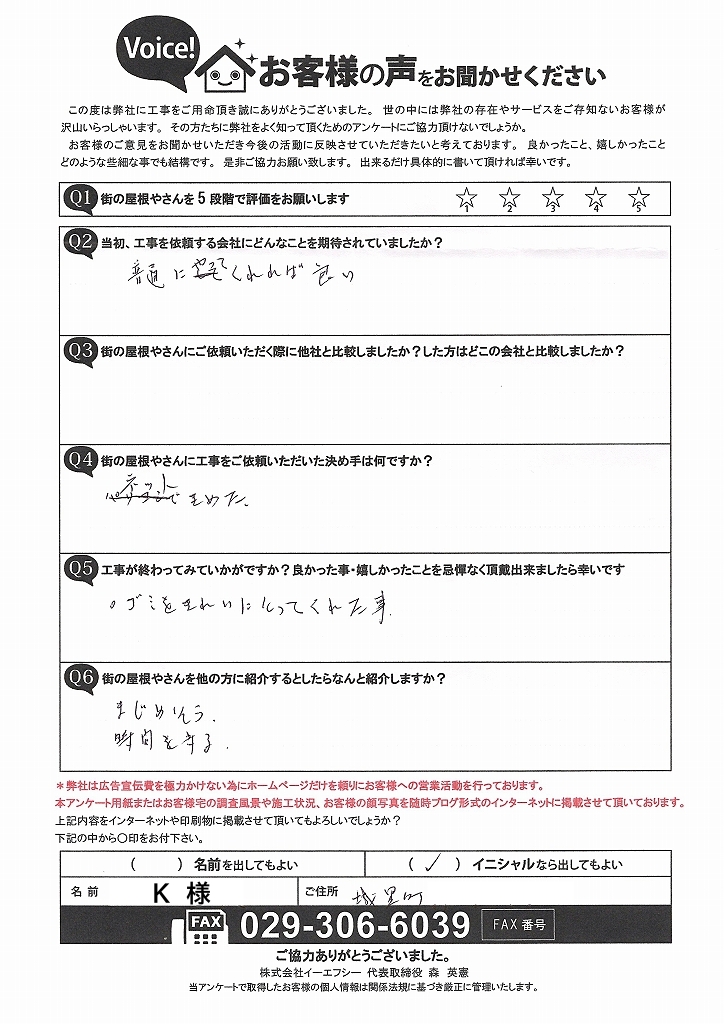 Voice!
お客様の声をお聞かせください
この度は弊社に工事をご用命頂き誠にありがとうございました。 世の中には弊社の存在やサービスをご存知ないお客様が
沢山いらっしゃいます。 その方たちに弊社をよく知って頂くためのアンケートにご協力頂けないでしょうか。
お客様のご意見をお聞かせいただき今後の活動に反映させていただきたいと考えております。 良かったこと、嬉しかったこと
どのような些細な事でも結構です。 是非ご協力お願い致します。 出来るだけ具体的に書いて頂ければ幸いです。
Q1 街の屋根やさんを5段階で評価をお願いします
1 2 3 4 5
Q2 当初、工事を依頼する会社にどんなことを期待されていましたか？
普通にやってくれれば良い
Q3 街の屋根やさんにご依頼いただく際に他社と比較しましたか？した方はどこの会社と比較しましたか？
Q4 街の屋根やさんに工事をご依頼いただいた決め手は何ですか？
ネット
きめた。
Q5 工事が終わってみていかがですか？良かった事・嬉しかったことを忌憚なく頂戴出来ましたら幸いです
。ゴミをきれいにとってくれた事
Q6 街の屋根やさんを他の方に紹介するとしたらなんと紹介しますか？
まじめそう。
時間を守る。
＊弊社は広告宣伝費を極力かけない為にホームページだけを頼りにお客様への営業活動を行っております。
本アンケート用紙またはお客様宅の調査風景や施工状況、お客様の顔写真を随時ブログ形式のインターネットに掲載させて頂いております。
上記内容をインターネットや印刷物に掲載させて頂いてもよろしいでしょうか？
下記の中から〇印をお付下さい。
（　　）名前を出してもよい （ ✓ ）イニシャルなら出してもよい
名前 K 様 ご住所 城里町
FAX 029-306-6039 FAX 番号
ご協力ありがとうございました。
株式会社イーエフシー 代表取締役 森 英憲
当アンケートで取得したお客様の個人情報は関係法規に基づき厳正に管理いたします。